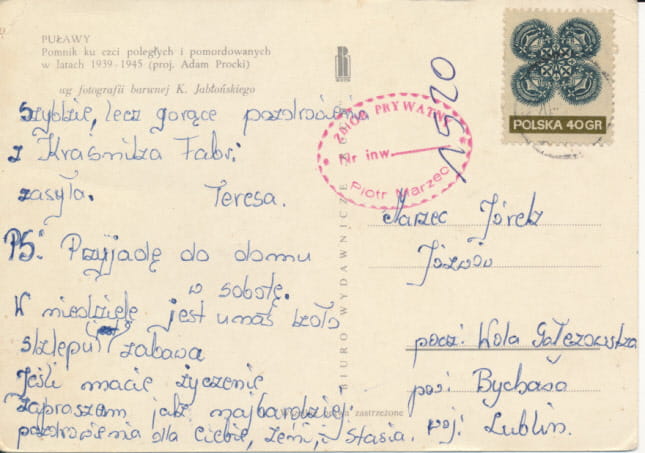 PUŁAWY
Pomnik ku czci poległych i pomordowanych
w latach 1939-1945 (proj. Adam Procki)
wg fotografii barwnej K. Jabłońskiego
Szybkie, lecz gorące pozdrowienia
z Kraśnika Fabr.
zasyła. Teresa.
PS: Przyjadę do domu
w sobotę.
W niedzielę jest u nas koło
sklepu zabawa
Jeśli macie życzenie
zapraszam jak najbardziej.
pozdrowienia dla Ciebie, Zeni, i Stasia.
BIURO WYDAWNICZE
zastrzeżone
ZBIÓR PRYWATNY
Nr inw.
Piotr Marzec
1520
POLSKA 40 GR
Marzec Józek
Józwów
pocz: Wola Gałęzowska
pow: Bychawa
woj: Lublin.